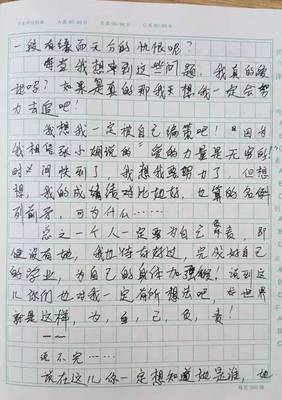 一般有缘而无分的仇恨呢?
每当我想到这些问题,我真的爱
她吗?如果是真的那我想我一定会努
力去追吧!
我想我一定被自己编策吧!因为
我相信张小娴说的"爱的力量是无穷的
时间快到了,我想我要努力了,但想
想,我的成绩对比她好,也算的名列
列前茅,可为什么……
总之一个人一定要为自己负责,即
使没有她,我也得奋好过,完成好自己
的学业,为自己的身体加强锻!说到这
儿你们也对我一定有所想法吧,世界
就是这样,为,自,己,负,责!
一一
说不完……
说在这儿你一定想知道她是谁,她